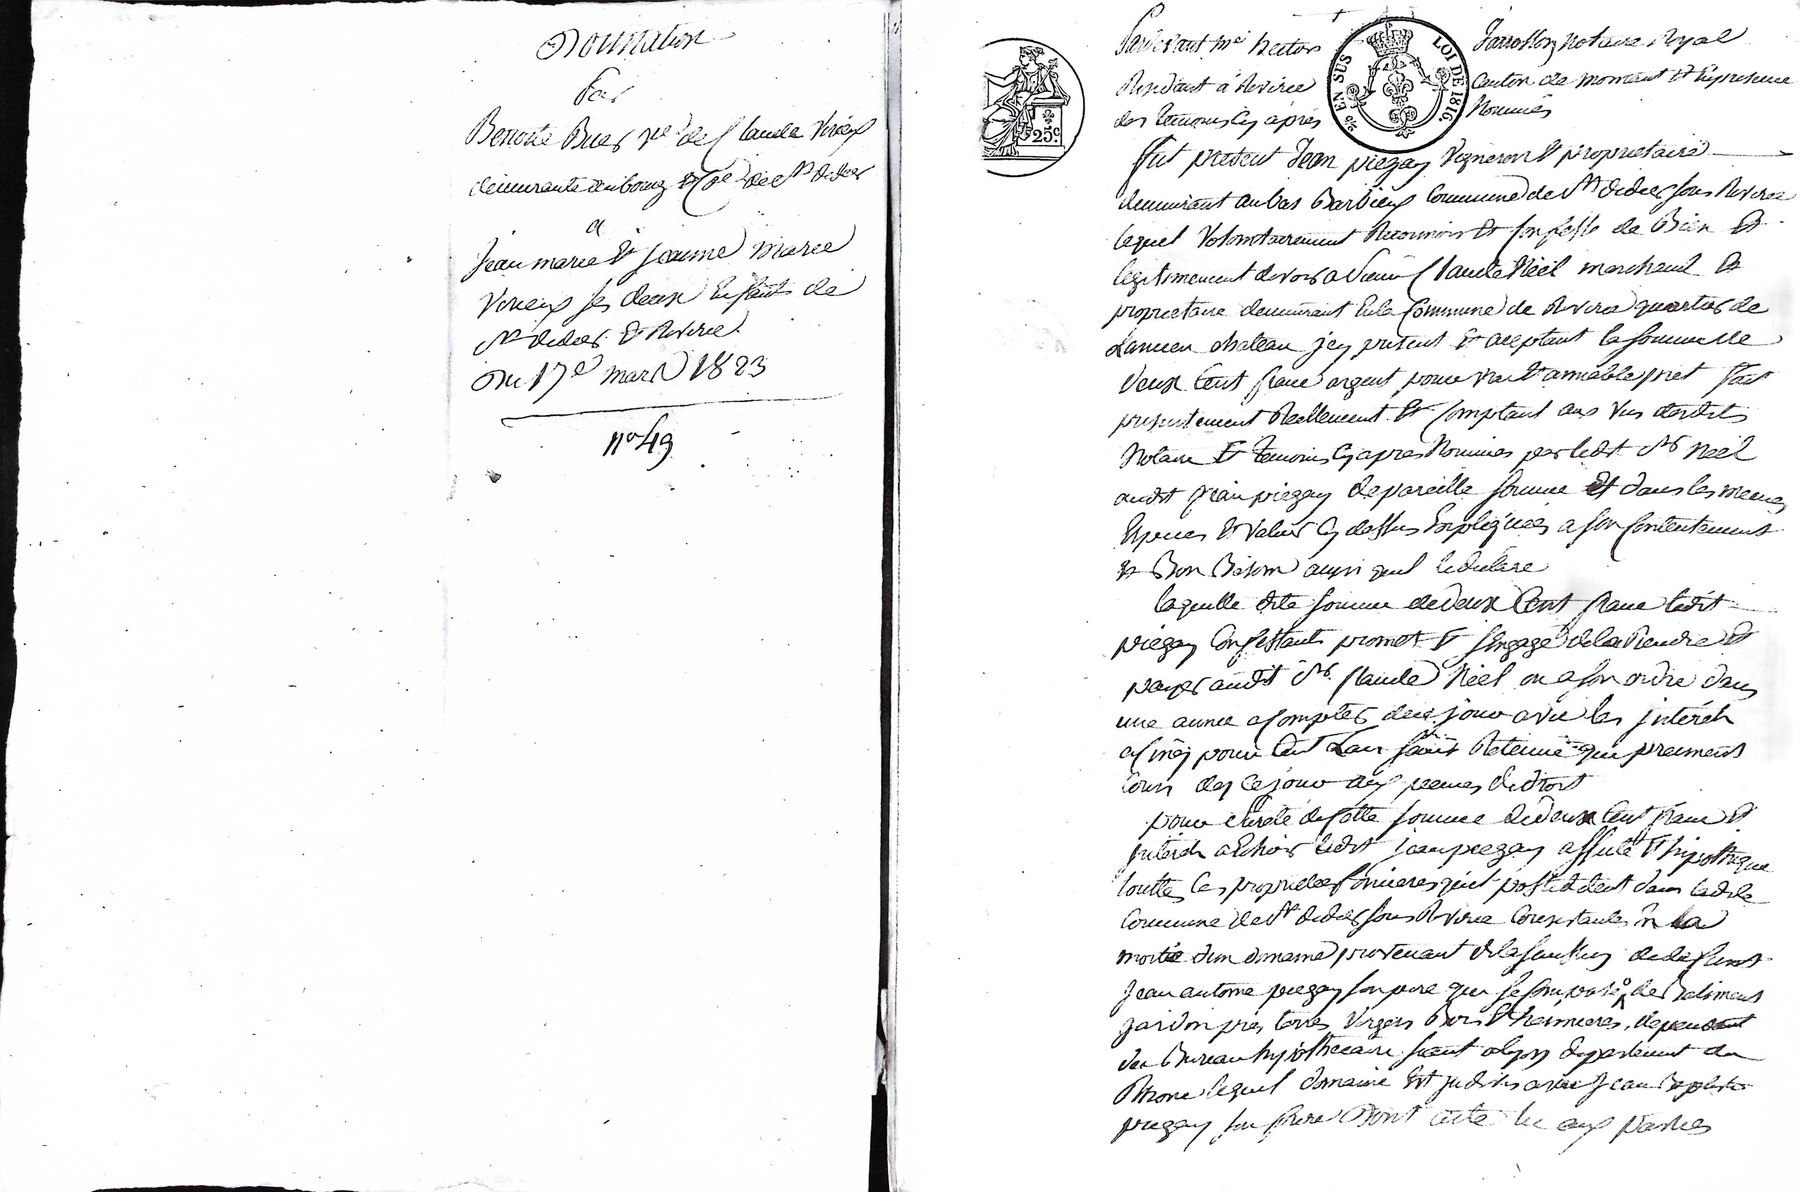 Donnation
Par
Benoite Brier ve de Claude Virieux
demeurante au bourg & Cne de St didier
a
Jean marie & jeanne marie
Virieux ses deux Enfants de
St didier & Riverie
Du 17e mars 1823
no 49
25c.
EN SUS
LOI DE 1816
Pardevant me hector notaire Royal
Residant a Riverie canton de mornant Et En presence
des temoins Cy après Nommés
fut present Jean piegay Vigneron & proprietaire
demeurant au bas Barbieux Commune de St didier sous Riverie
lequel Volontairement Reconnois Et Confesse de Bien Et
legitimement devoir a Sieur Claude Néel marchand Et
proprietaire demeurant En la Commune de Riverie quartier de
Lancien chateau jcy present Et aceptant la somme de
deux Cent franc argent pour vrai & amiable pret fait
presentement Reellement Et Comptant aux Vus desdits
Notaire Et temoins Cy apres Nommés par ledit Sr Néel
audit jean piegay de pareille somme Et dans les memes
Especes Et Valeur Cy dessus Expliquées a son Contentement
Et Bon ainsi quil le declare
laquelle dite somme de deux Cent franc ledit
piegay Confessant promet Et sengage de la Rendre Et
payer audit Sr Claude Néel ou a son ordre dans
une année a Compter de ce jour avec les jnterêts
a Cinq pour Cent Lan sans Retenue qui prennent
Cour des ce jour aux peines de droit
pour sureté de Cette somme de deux Cent franc Et
jnterêts a Echoir ledit jean piegay affecte Et hipottéque
touttes les proprietes foncieres quil possede dans ladite
Commune de St didier sous Riverie Consistantes En la
moitié dun domaine provenant de la succession de defunt
Jean antoine piegay son pere qui se Compose de Batiment
jardin près terres Vergers Bois Et dependant
du Bureau hypothecaire seant a lyon departement du
Rhone lequel domaine Est jndivis avec Jean Baptiste
piegay son frere Dont acte lu aux parties